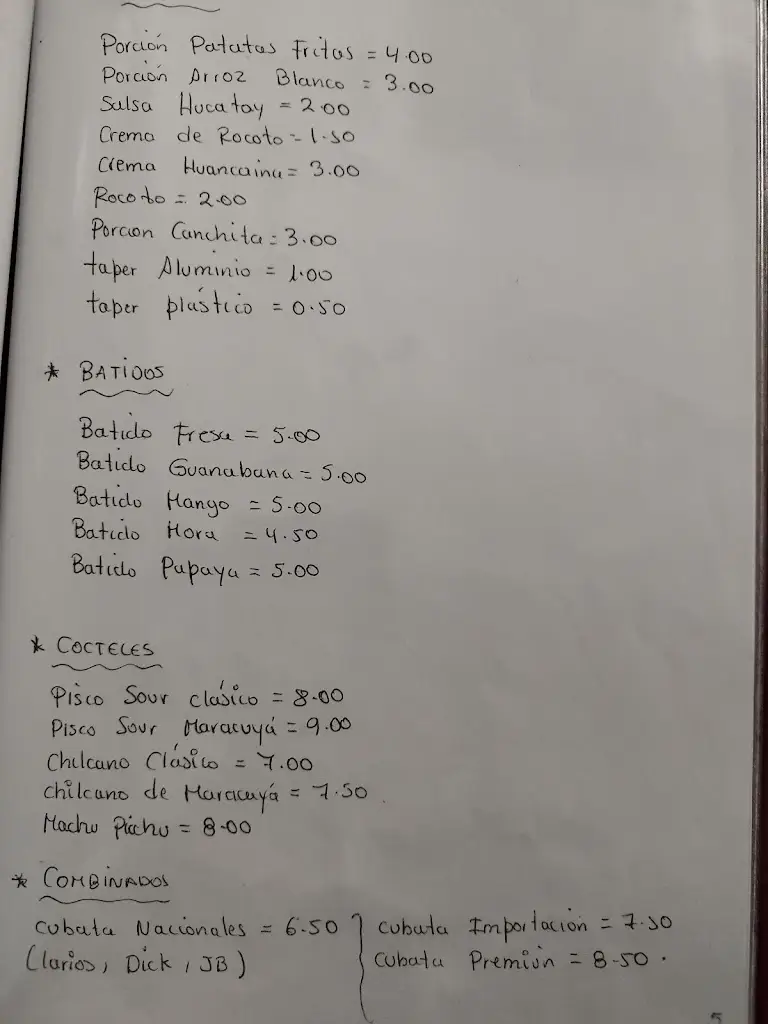 Porción Patatas Fritas = 4.00
Porción Arroz Blanco = 3.00
Salsa Hucatay = 2.00
Crema de Rocoto = 1.50
Crema Huancaina = 3.00
Rocoto = 2.00
Porcion Canchita = 3.00
taper Aluminio = 1.00
taper plástico = 0.50
* BATIDOS
Batido Fresa = 5.00
Batido Guanabana = 5.00
Batido Mango = 5.00
Batido Mora = 4.50
Batido Papaya = 5.00
* COCTELES
Pisco Sour clásico = 8.00
Pisco Sour Maracuyá = 9.00
Chilcano Clásico = 7.00
chilcano de Maracuyá = 7.50
Machu Picchu = 8.00
* COMBINADOS
cubata Nacionales = 6.50
(Larios, Dick, JB)
cubata Importación = 7.50
cubata Premiun = 8.50.
5